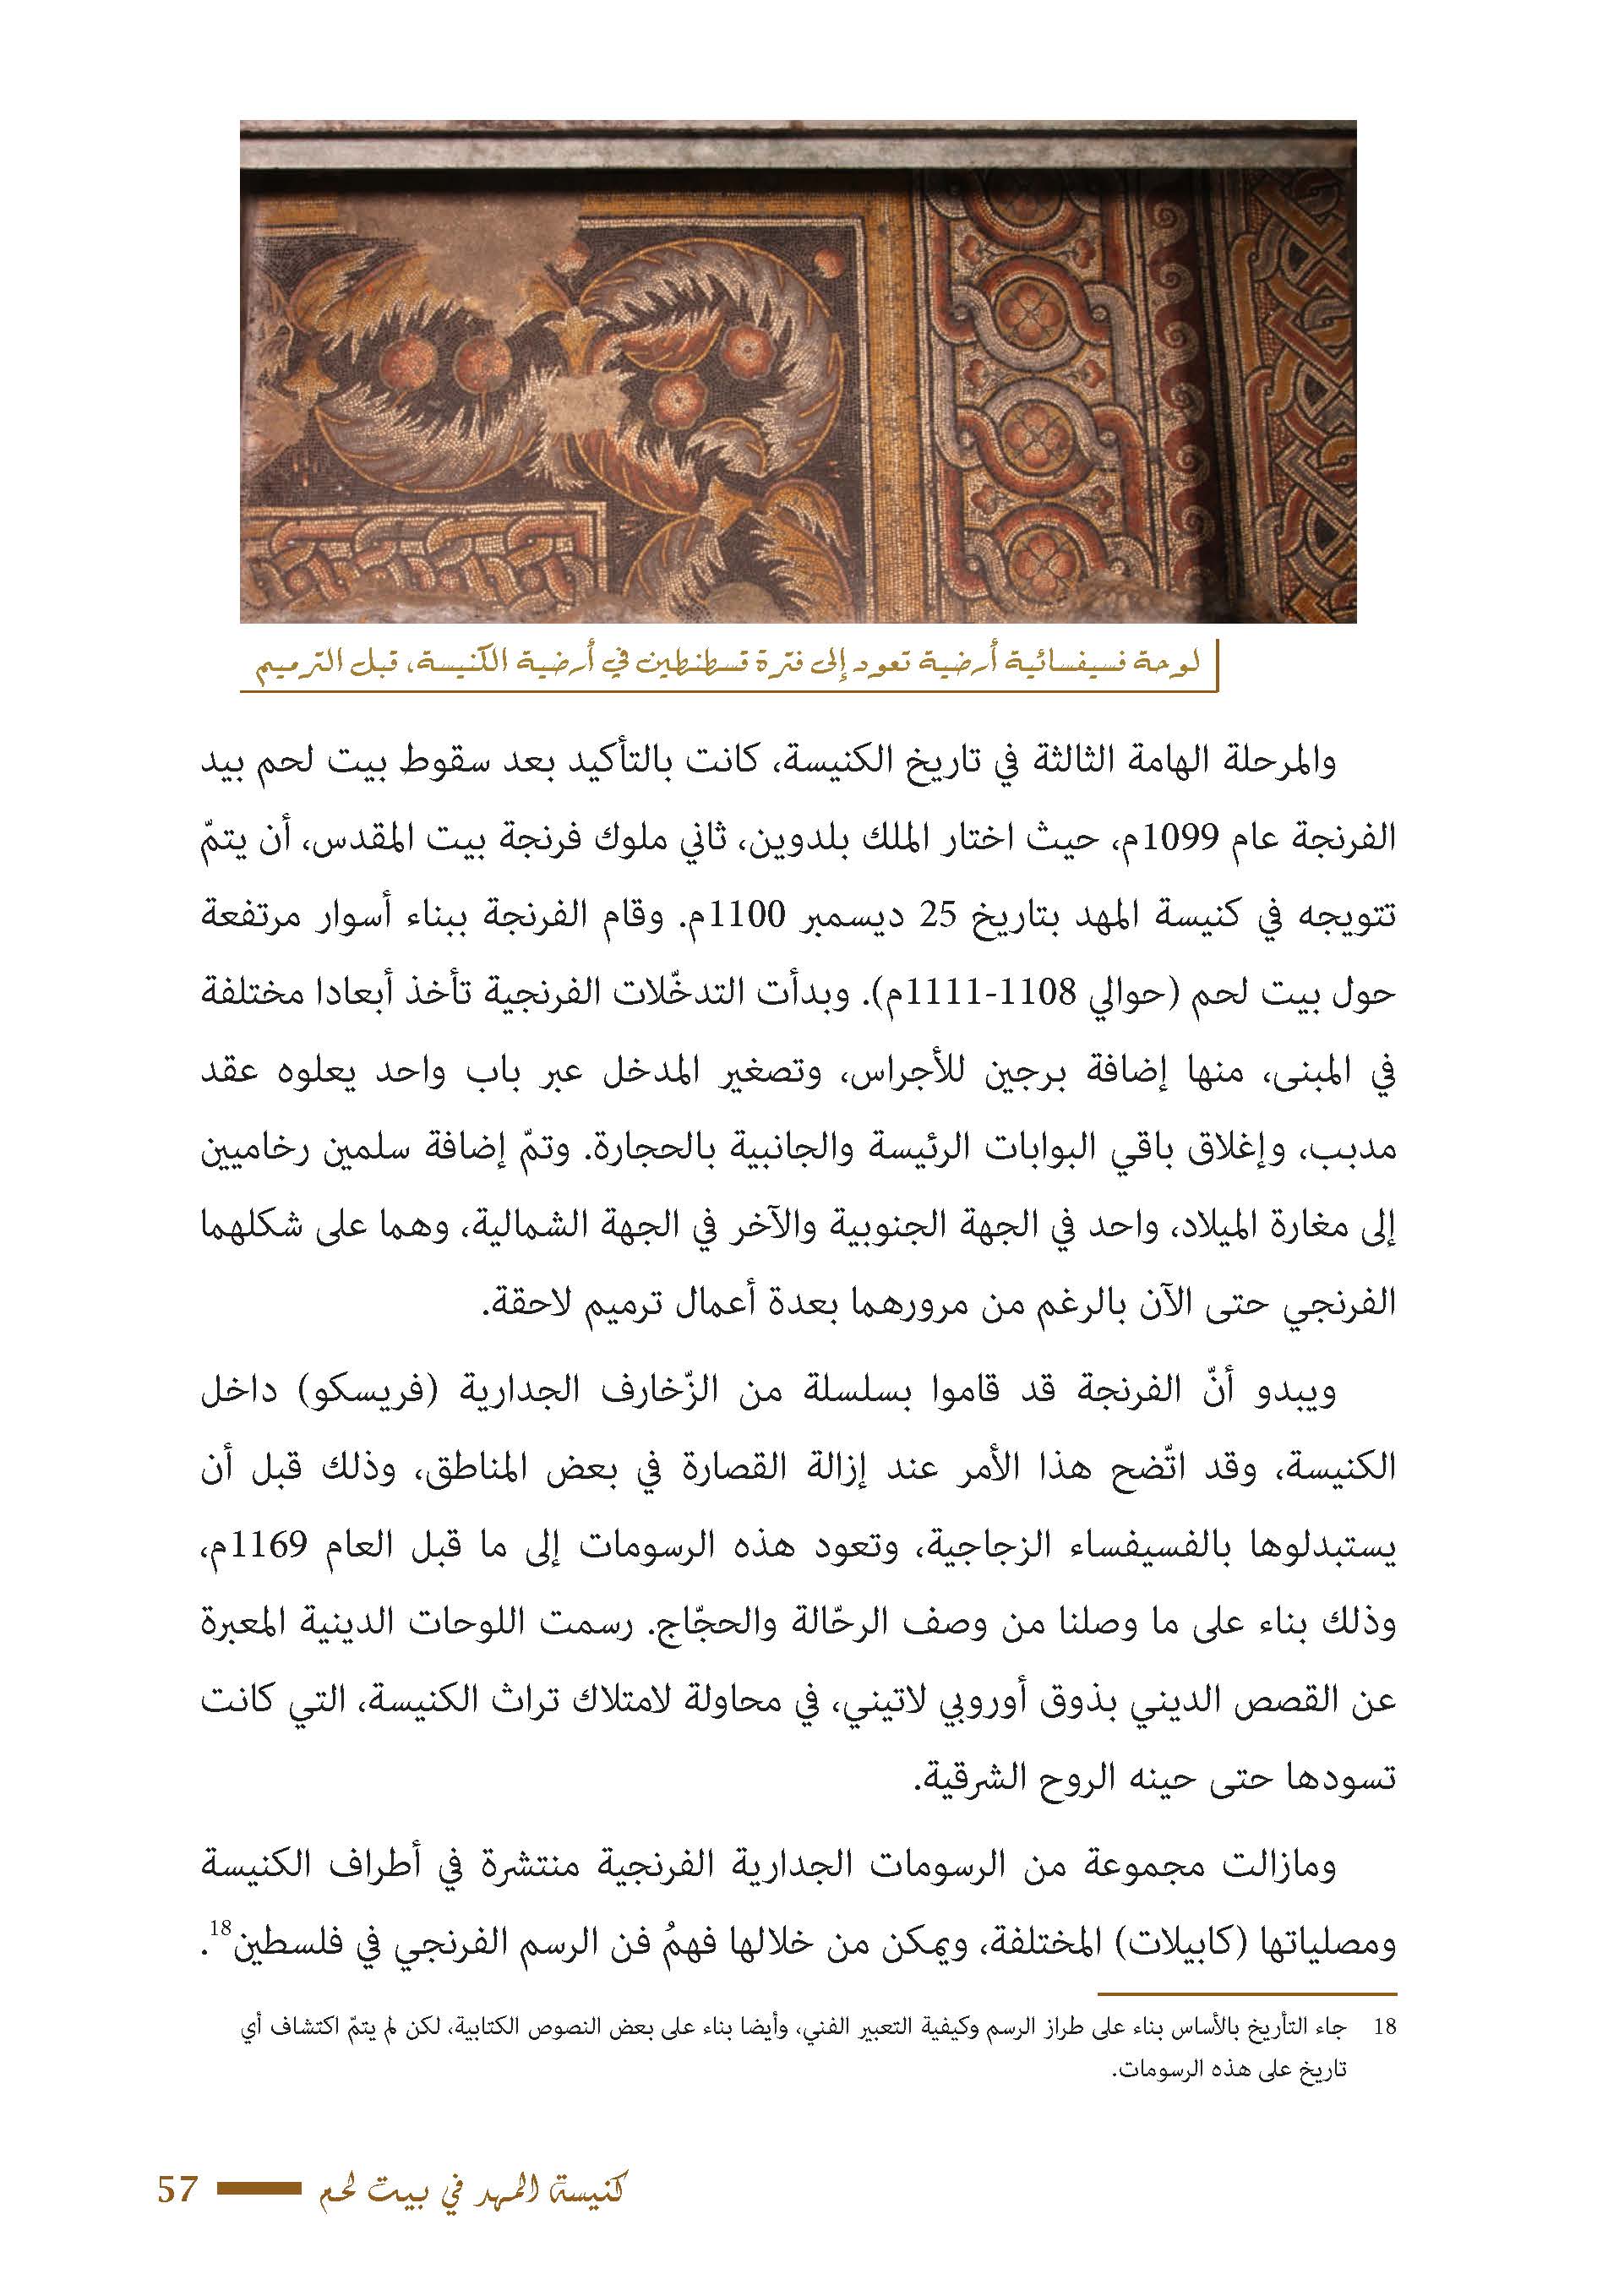 لوحة فسيفسائية أرضية تعود إلى فترة قسطنطين في أرضية الكنيسة، قبل الترميم
والمرحلة الهامة الثالثة في تاريخ الكنيسة، كانت بالتأكيد بعد سقوط بيت لحم بيد
الفرنجة عام 1099م، حيث اختار الملك بلدوين، ثاني ملوك فرنجة بيت المقدس، أن يتمّ
تتويجه في كنيسة المهد بتاريخ 25 ديسمبر 1100م. وقام الفرنجة ببناء أسوار مرتفعة
حول بيت لحم (حوالي 1108-1111م). وبدأت التدخّلات الفرنجية تأخذ أبعادا مختلفة
في المبنى، منها إضافة برجين للأجراس، وتصغير المدخل عبر باب واحد يعلوه عقد
مدبب، وإغلاق باقي البوابات الرئيسة والجانبية بالحجارة. وتمّ إضافة سلمين رخاميين
إلى مغارة الميلاد، واحد في الجهة الجنوبية والآخر في الجهة الشمالية، وهما على شكلهما
الفرنجي حتى الآن بالرغم من مرورهما بعدة أعمال ترميم لاحقة.
ويبدو أنّ الفرنجة قد قاموا بسلسلة من الزّخارف الجدارية (فريسكو) داخل
الكنيسة، وقد اتّضح هذا الأمر عند إزالة القصارة في بعض المناطق، وذلك قبل أن
يستبدلوها بالفسيفساء الزجاجية، وتعود هذه الرسومات إلى ما قبل العام 1169م،
وذلك بناء على ما وصلنا من وصف الرحّالة والحجّاج. رسمت اللوحات الدينية المعبرة
عن القصص الديني بذوق أوروبي لاتيني، في محاولة لامتلاك تراث الكنيسة، التي كانت
تسودها حتى حينه الروح الشرقية.
ومازالت مجموعة من الرسومات الجدارية الفرنجية منتشرة في أطراف الكنيسة
ومصلياتها (كابيلات) المختلفة، ويمكن من خلالها فهمُ فن الرسم الفرنجي في فلسطين18.
18 جاء التأريخ بالأساس بناء على طراز الرسم وكيفية التعبير الفني، وأيضا بناء على بعض النصوص الكتابية، لكن لم يتمّ اكتشاف أي
تاريخ على هذه الرسومات.
كنيسة المهد في بيت لحم 57